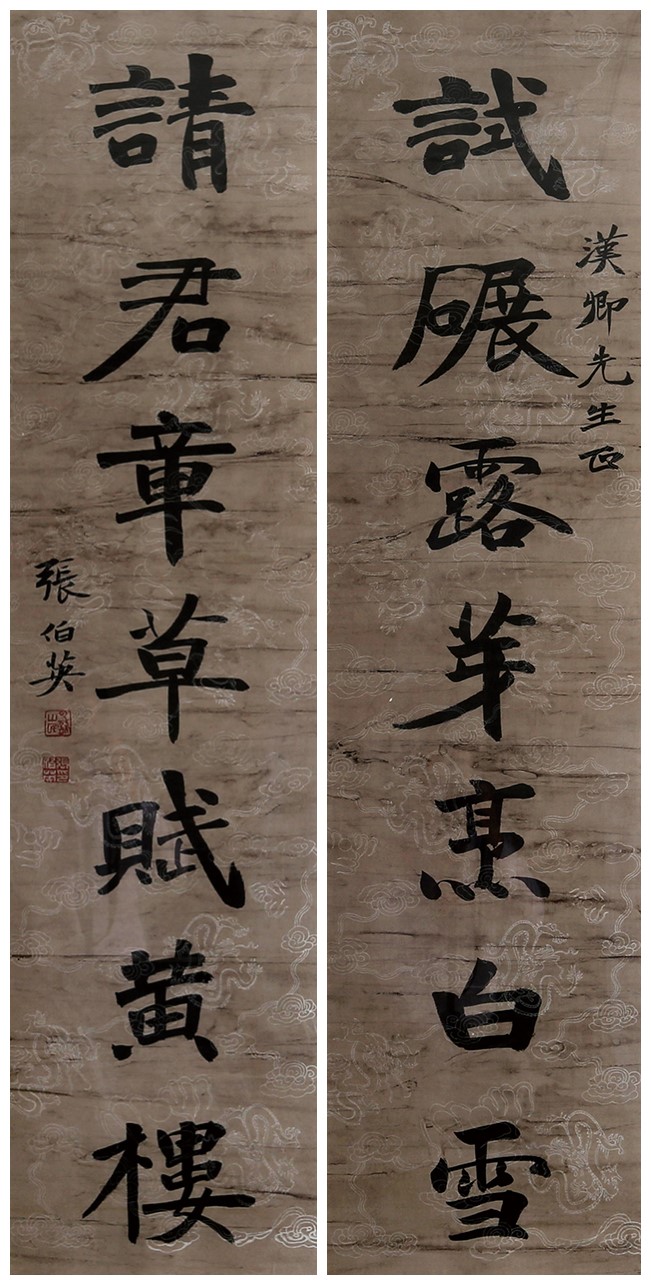 漢卿先生正
試碾露芽烹白雪
請君章草賦黃樓
張伯英